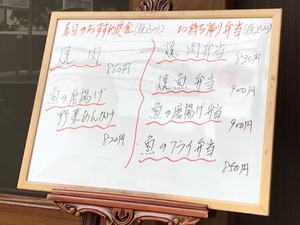 本日のおすすめ定食(税込み)
焼肉
800円
魚の唐揚げ
野菜あんかけ
820円
お持ち帰り弁当(税込み)
焼肉弁当
830円
焼魚弁当
900円
魚の唐揚げ弁当
900円
魚のフライ弁当
850円